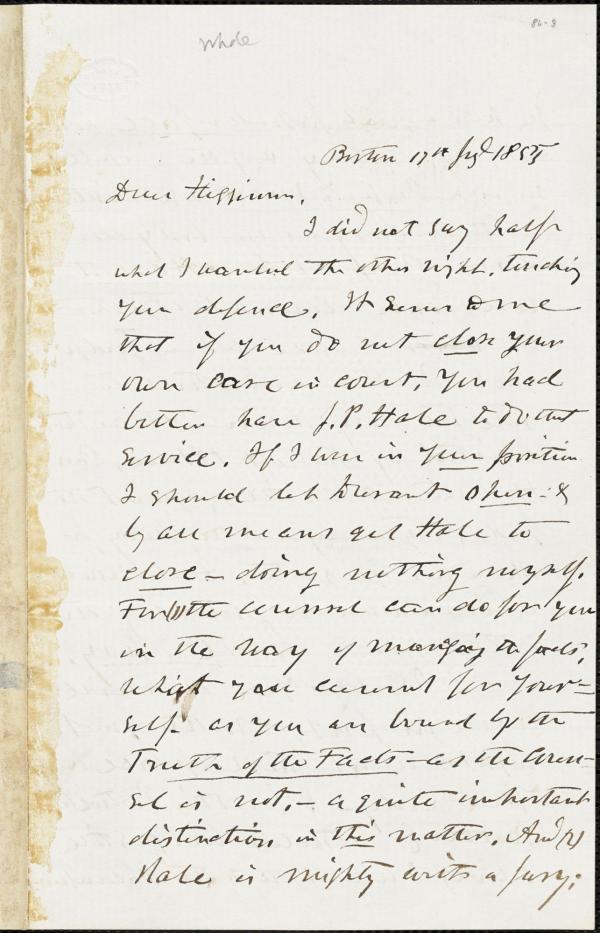 86-3
Whole
Boston 17th 1855
Dear Higginson,
I did not say half
what I wanted the other night, touching
your defence. It seems to me
that if you do not close your
own case in court, you had
better have J. P. Hale to do that
service. If I were in your position
I should let Durant open: &
by all means get Hale to
close – doing nothing myself.
For (1) the counsel can do for you
in the way of managing the facts,
what you cannot for your=
self – as you are bound by the
Truth of the Facts – as the coun-
sel is not, – a quite important
distinction in this matter. And (2)
Hale is mighty with a jury;